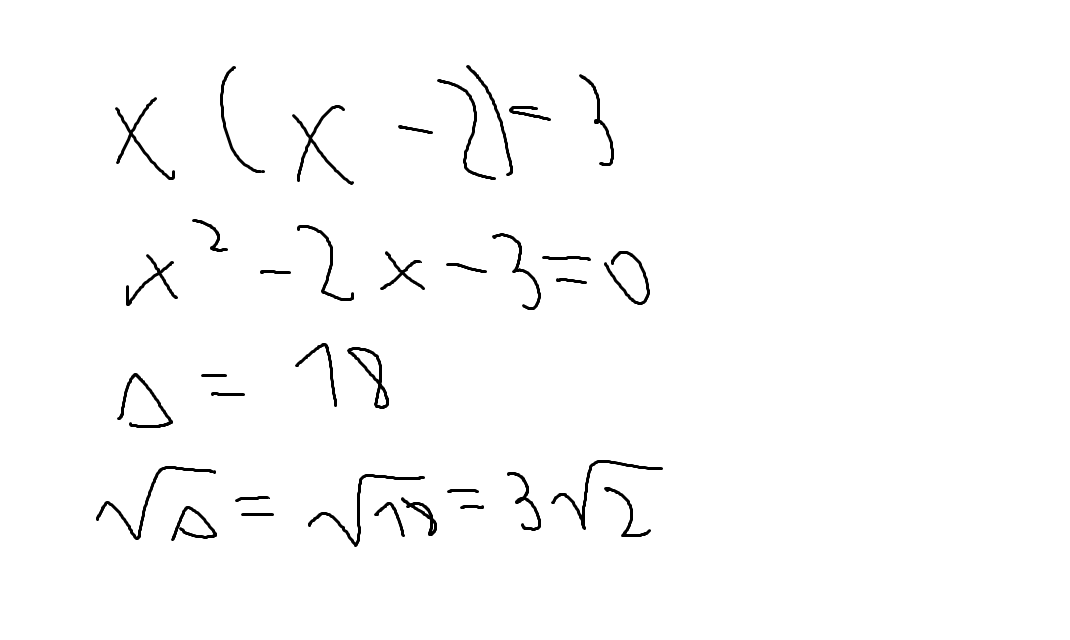 x(x-2)=3
x²-2x-3=0
Δ=18
√Δ=√18=3√2